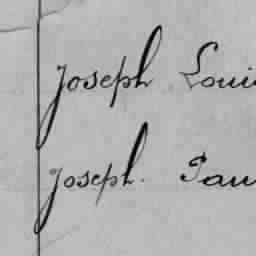 Joseph Loui
Joseph. Pau